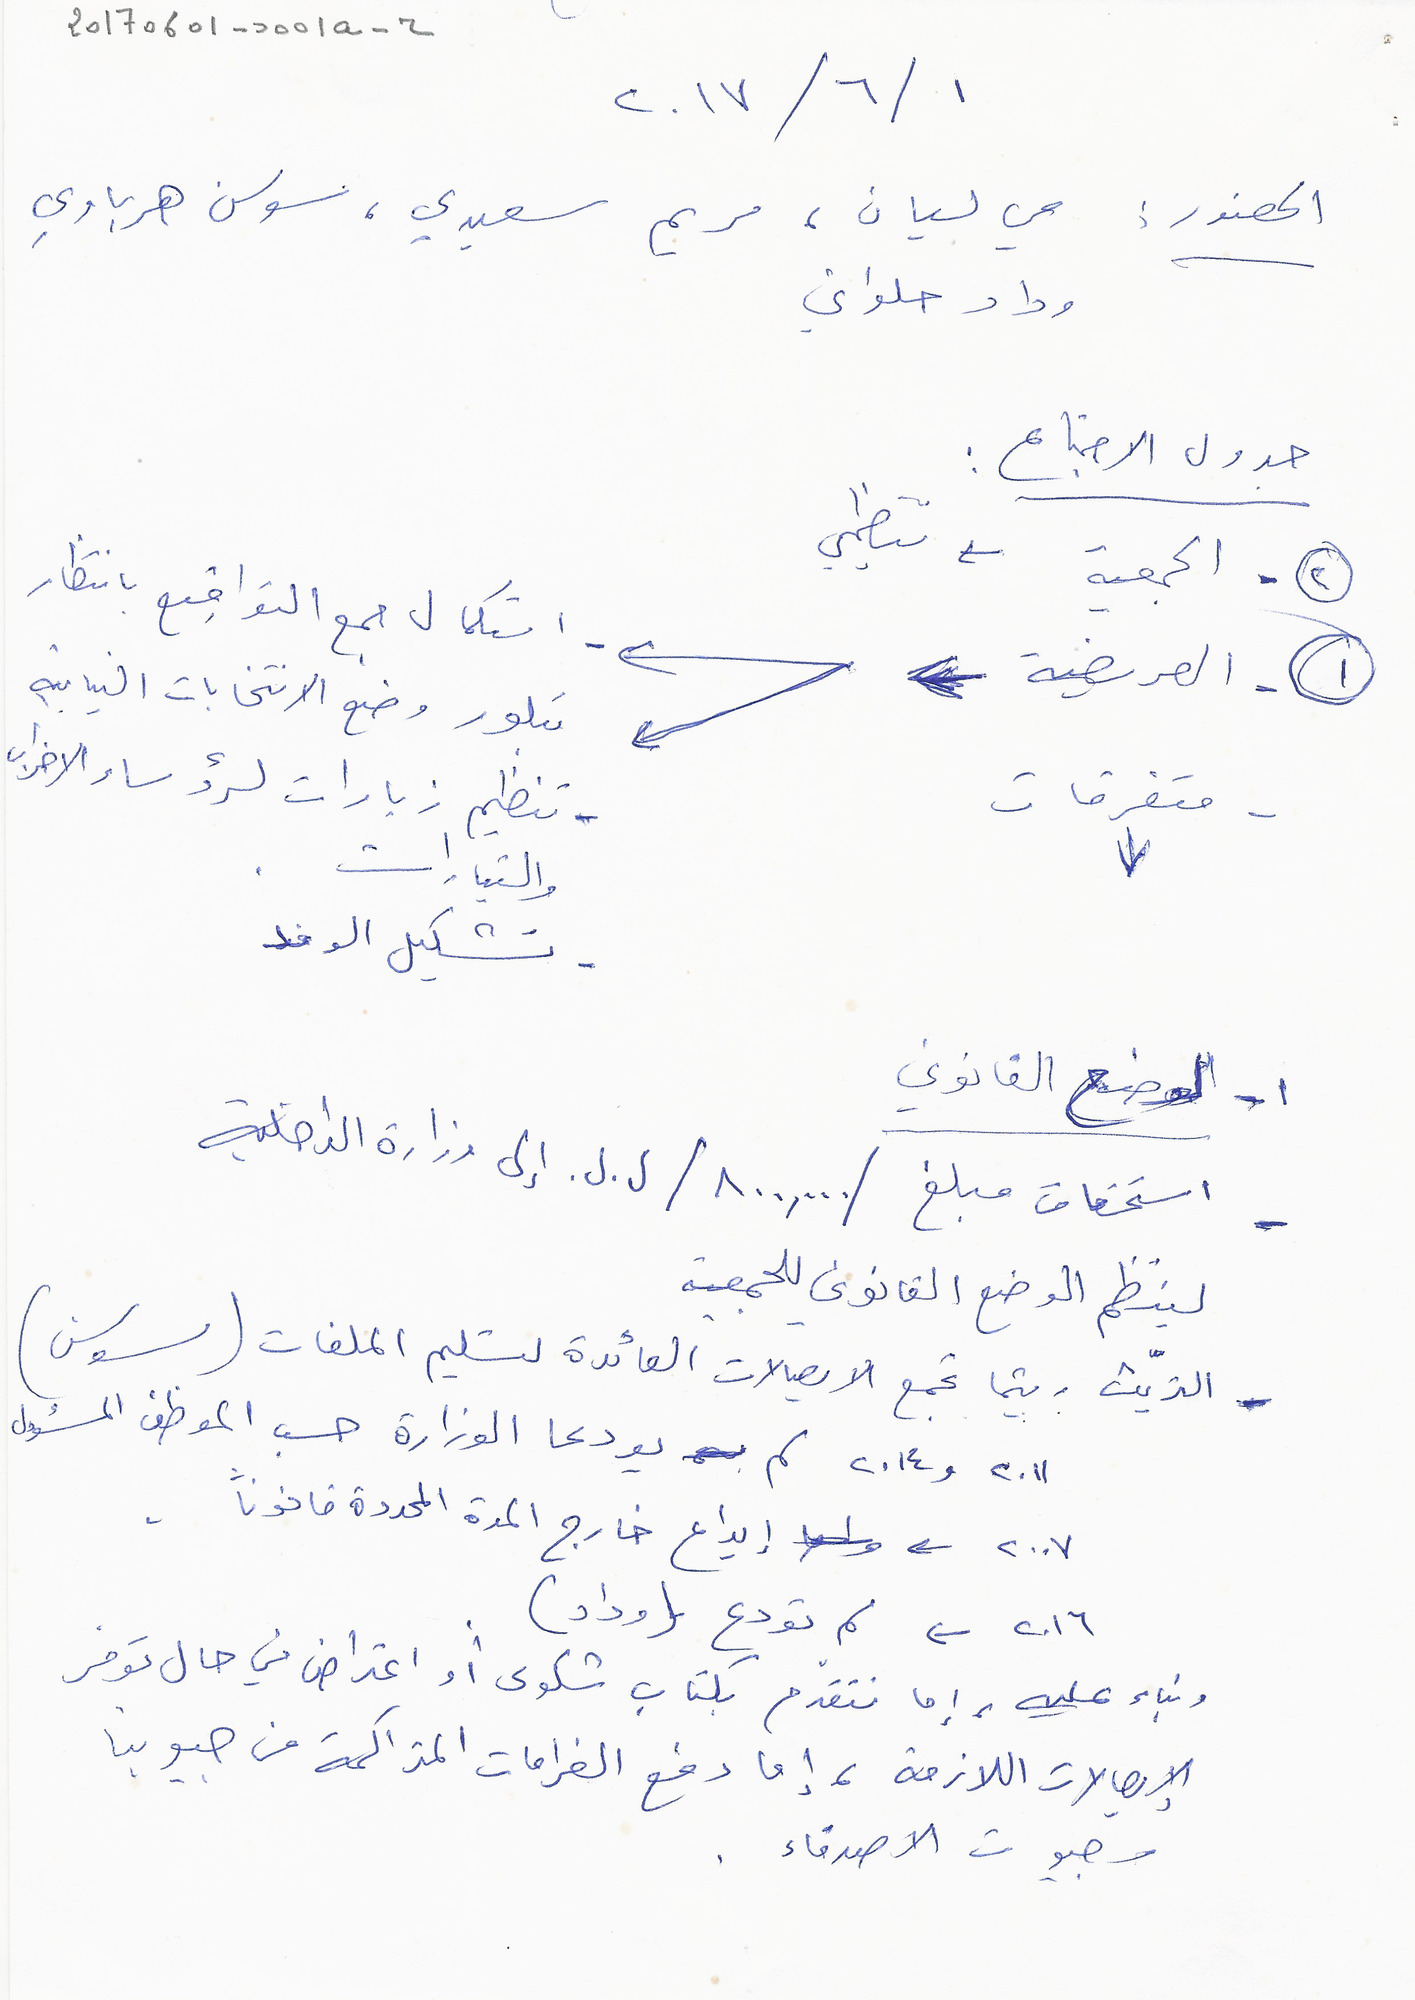 20170601-D001a-r
٢٠١٧/٦/١
الحضور: مي لسيان، مريم سعيدي، سوسن هرباوي
وداد حلواني
جدول الاجتماع:
٢- الجمعية ← تنظيمي
١- العريضة ←
- استكمال جمع التواقيع بانتظار
تبلور وضع الانتخابات النيابية
- تنظيم زيارات لرؤساء الاحزاب
والتيارات.
- تشكيل الوفد
- متفرقات
١- الوضع القانوني
- استحقاق مبلغ /٨٠٠,٠٠٠/ ل.ل. إلى وزارة الداخلية
لينتظم الوضع القانوني للجمعية
- التريّث ريثما نجمع الايصالات العائدة لتسليم الملفات (سوسن)
٢٠١١ و٢٠١٤ لم يودعا الوزارة حسب الموظف المسؤول
٢٠٠٧ ← إيداع خارج المدة المحددة قانوناً -
٢٠١٦ ← لم تودع (وداد)
وبناء عليه، إما نتقدّم بكتاب شكوى أو اعتراض في حال توفر
الإيصالات اللازمة، إما دفع الغرامات المتراكمة من جيوبنا
وجيوب الاصدقاء.